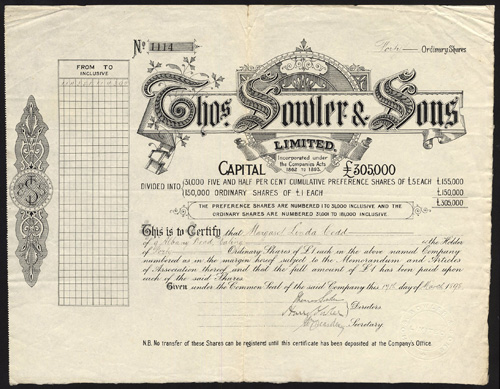 No 1114
Forty Ordinary Shares
FROM TO
INCLUSIVE
Thos. Sowler & Sons
LIMITED.
Incorporated under
the Companies Acts
1862 TO 1893.
CAPITAL £305,000
DIVIDED INTO 31,000 FIVE AND HALF PER CENT CUMULATIVE PREFERENCE SHARES OF £5 EACH £155,000
150,000 ORDINARY SHARES OF £1 EACH £150,000
£305,000
THE PREFERENCE SHARES ARE NUMBERED 1 TO 31,000 INCLUSIVE AND THE
ORDINARY SHARES ARE NUMBERED 31,001 TO 181,000 INCLUSIVE.
This is to Certify that Margaret Linda Codd
of Albany Road, Ealing is the Holder
of Ordinary Shares of £1 each in the above named Company
numbered as in the margin hereof subject to the Memorandum and Articles
of Association thereof and that the full amount of £1 has been paid upon
each of the said Shares
Given under the Common Seal of the said Company this 17th day of March
Directors
Harry
Secretary
N.B. No transfer of these Shares can be registered until this certificate has been deposited at the Company's Office.